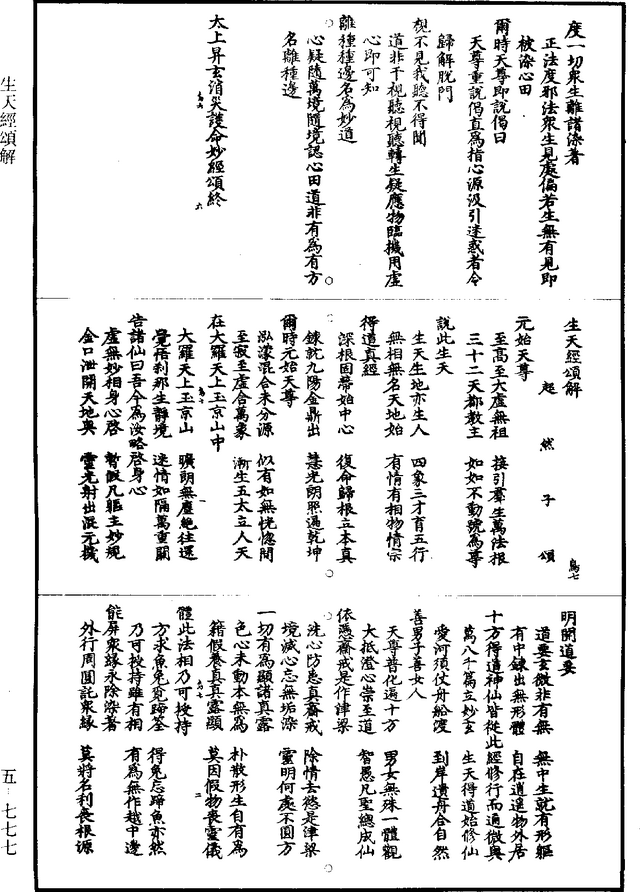 生天經頌解
五‧七七七
度一切衆生離諸染著
正法度邪法衆生見處偏若生無有見即
被染心田
爾時天尊即說偈曰
天尊重說偈直為指心源汲引迷惑者令
歸解脫門
視不見我聽不得聞
道非干視聽視聽轉生疑應物臨機用虛
心即可知
離種種邊名為妙道
心疑隨萬境隨境認心田道非有為有方
名離種邊
太上昇玄消災護命妙經頌終
生天經頌解
超然子頌
元始天尊
至高至大虛無祖 接引羣生萬法根
三十二天都教主 如如不動號為尊
說此生天
生天生地亦生人 四象三才育五行
無相無名天地始 有情有相物情宗
得道真經
深根固蔕始中心 復命歸根立本真
鍊就九陽金鼎出 慧光朗照遍乾坤
爾時元始天尊
泓濛混合未分源 似有如無恍惚間
至寂至虛含萬象 漸生五太立人天
在大羅天上玉京山中
大羅天上玉京山 曠朗無塵絶往還
覺悟刹那生靜境 迷情如隔萬重關
告諸仙曰吾今為汝略啓身心
虛無妙相身心啓 暫假凡軀主妙規
金口泄開天地奥 靈光射出混元機
明開道要
道要玄微非有無 無中生就有形軀
有中鍊出無形體 自在逍遥物外居
十方得道神仙皆從此經修行而通微奥
萬八千篇立妙玄 生天得道始修仙
愛河須仗舟船渡 到岸遺舟合自然
善男子善女人
天尊普化遍十方 男女無殊一體觀
大抵澄心崇至道 智愚凡聖總成仙
依憑齋戒是作津梁
洗心防患真齋戒 除情去慾是津梁
境滅心忘無垢染 靈明何處不圓方
一切有為顯諸真露
色心未動本無為 朴散形生自有為
籍假養真真露顯 莫因假物喪靈儀
體此法相乃可授持
方求魚兔覓蹄筌 得兔忘蹄魚亦然
乃可授持雖有相 有為無作越中邊
能屏衆緣永除染著
外行周圓託衆緣 莫將名利喪根源